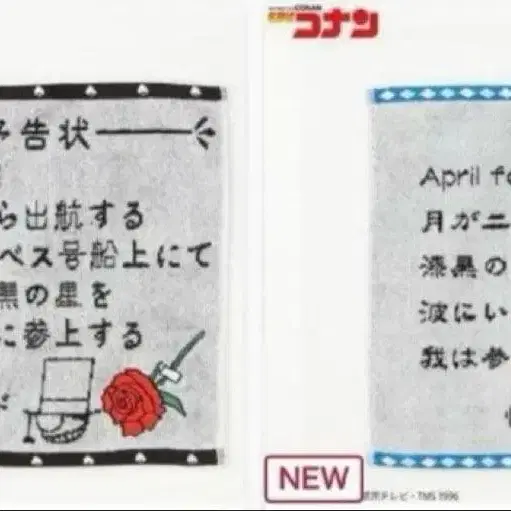 告状
ら出航する
ベス号船上にて
黒の星を
に参上する
CONAN
名探偵コナン
April fo
月が二
漆黒の
波にい
我は参
NEW
読売テレビ・TMS 1996